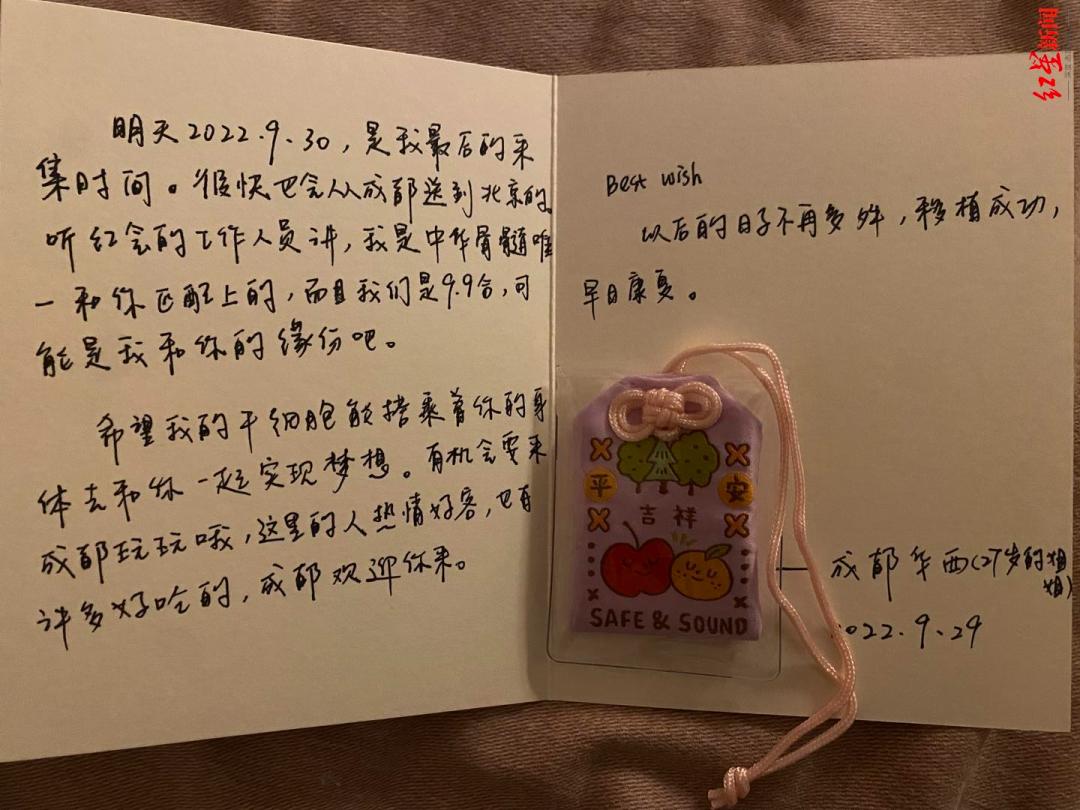 明天2022.9.30，是我最后的采
集时间。很快也会从成都送到北京的。
听红会的工作人员讲，我是中华骨髓唯
一和你匹配上的，而且我们是9.9合，可
能是我和你的缘份吧。
希望我的干细胞能搭乘着你的身
体去和你一起实现梦想。有机会要来
成都玩玩哦，这里的人热情好客，也有
许多好吃的，成都欢迎你来。
Best wish
以后的日子不再多舛，移植成功，
早日康复。
平 安
吉祥
SAFE & SOUND
— 成都华西(27岁的姐姐)
2022.9.29